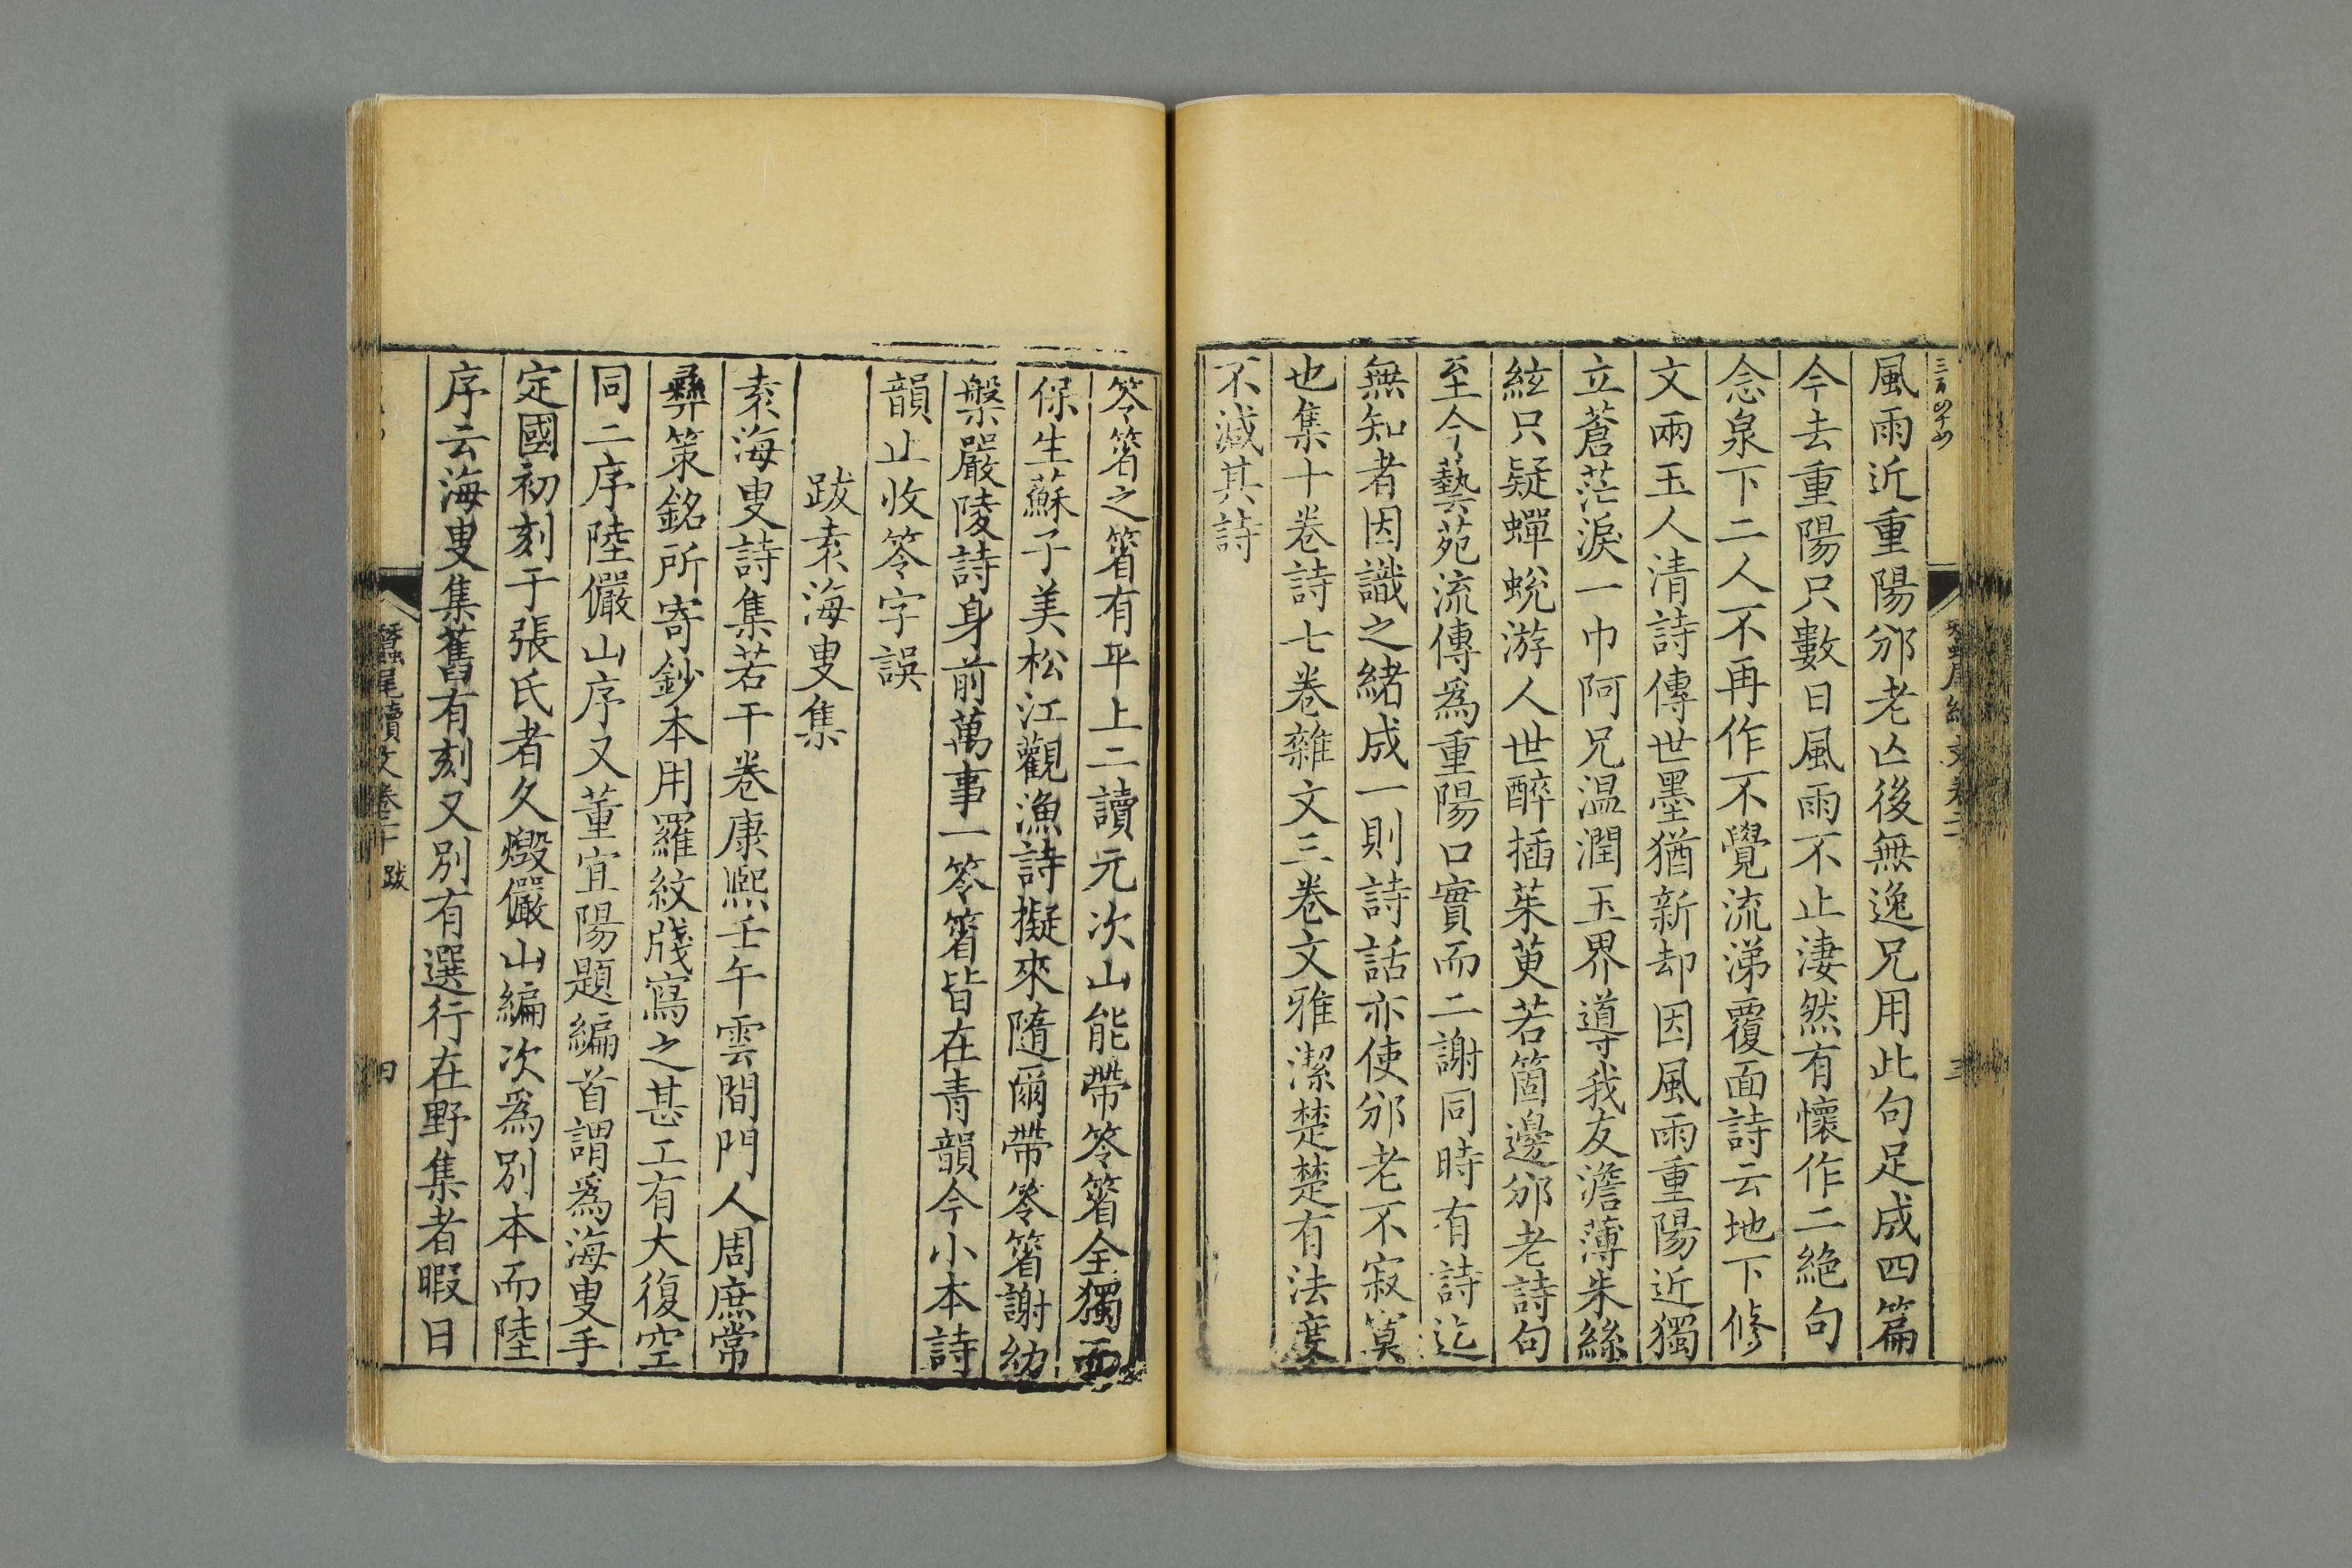 風雨近重陽邠老亡後無逸兄用此句足成四篇
今去重陽只數日風雨不止淒然有懷作二絶句
念泉下二人不再作不覺流涕覆面詩云地下修
文兩玉人清詩傳世墨猶新却因風雨重陽近獨
立蒼茫淚一巾阿兄温潤玉界導我友澹薄朱絲
絃只疑蟬蛻游人世醉插茱萸若箇邊邠老詩句
至今藝苑流傳爲重陽口實而二謝同時有詩迄
無知者因識之緒成一則詩話亦使邠老不寂寞
也集十卷詩七卷雜文三卷文雅潔楚楚有法度
不減其詩
笭箵之箵有平上二讀元次山能帶笭箵全獨而
保生蘇子美松江觀漁詩擬來隨爾帶笭箵謝幼
槃嚴陵詩身前萬事一笭箵皆在青韻今小本詩
韻止收笭字誤
跋袁海叟集
袁海叟詩集若干卷康熙壬午雲間門人周庶常
彝策銘所寄鈔本用羅紋牋寫之甚工有大復空
同二序陸儼山序又董宜陽題編首謂爲海叟手
定國初刻于張氏者久燬儼山編次爲別本而陸
序云海叟集舊有刻又別有選行在野集者暇日
蠶尾續文卷二十 跋